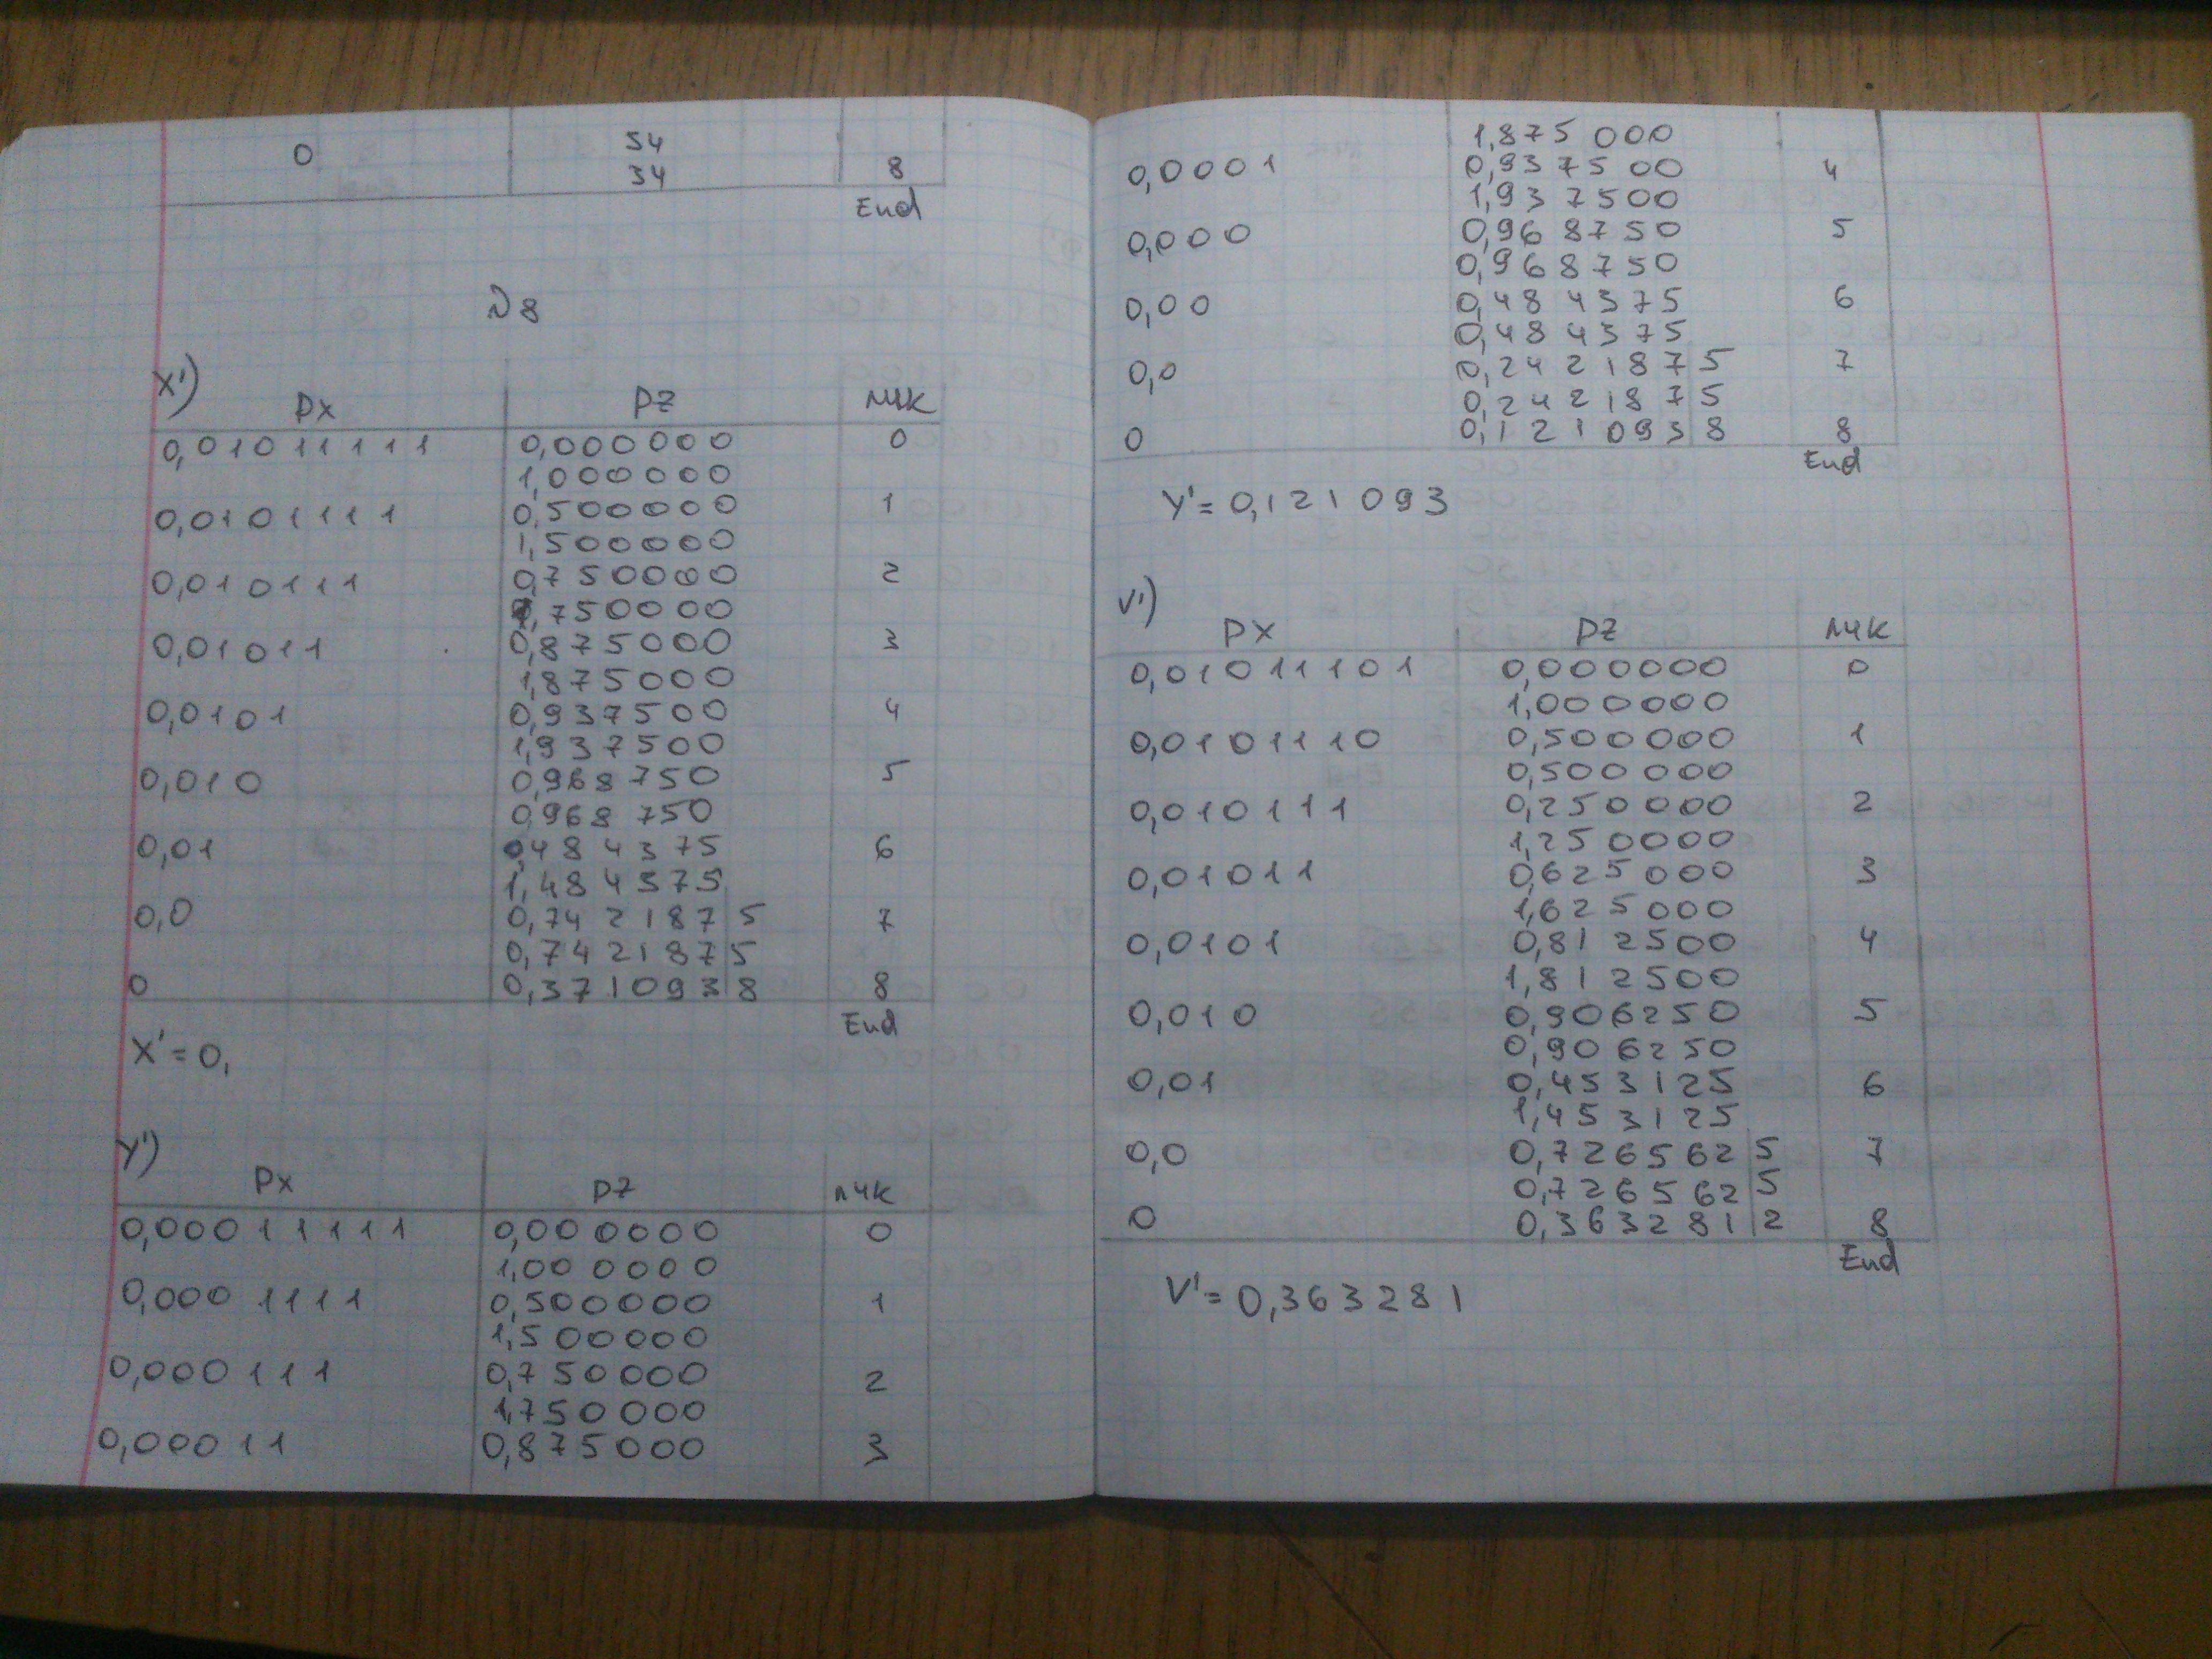 0 54
34 8
End
№8
X')
Рх PZ лчк
0,01011111 0,000000 0
1,000000
0,0101111 0,500000 1
1,500000
0,010111 0,750000 2
1,750000
0,01011 0,875000 3
1,875000
0,0101 0,937500 4
1,937500
0,010 0,968750 5
0,968750
0,01 0,484375 6
1,484375
0,0 0,742187|5 7
0,742187|5
0 0,371093|8 8
End
X'=0,
Y')
Px PZ лчк
0,00011111 0,000000 0
1,000000
0,0001111 0,500000 1
1,500000
0,000111 0,750000 2
1,750000
0,00011 0,875000 3
1,875000
0,0001 0,937500 4
1,937500
0,000 0,968750 5
0,968750
0,00 0,484375 6
0,484375
0,0 0,242187|5 7
0,242187|5
0 0,121093|8 8
End
Y'=0,121093
V')
PX PZ лчк
0,01011101 0,000000 0
1,000000
0,0101110 0,500000 1
0,500000
0,010111 0,250000 2
1,250000
0,01011 0,625000 3
1,625000
0,0101 0,812500 4
1,812500
0,010 0,906250 5
0,906250
0,01 0,453125 6
1,453125
0,0 0,726562|5 7
0,726562|5
0 0,363281|2 8
End
V'=0,363281